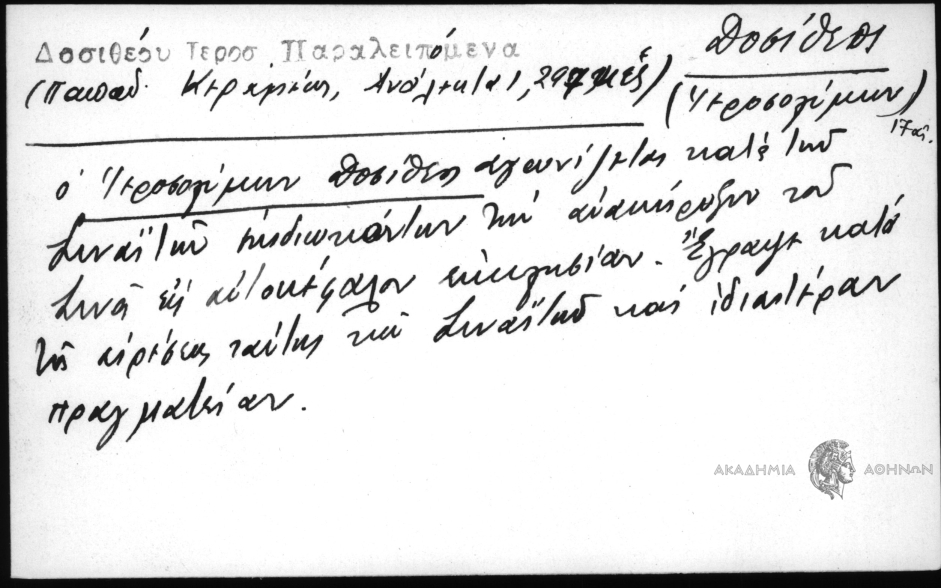 Δοσιθέου Ιεροσ Παραλειπόμενα
Δοσίθεος
(Παπαδ. Κεραμέως, Ανάλεκτα 1, 297 κἑξ)
(Ἱεροσολύμων)
17 αἰ.
ὁ Ἱεροσολύμων Δοσίθεος ἀγωνίζεται κατὰ τῶν
Σιναϊτῶν ἐπιδιωκόντων τὴν ἀνακήρυξιν τοῦ
Σινᾶ εἰς αὐτοκέφαλον ἐκκλησίαν. Ἔγραψε κατὰ
τῆς αἱρέσεως ταύτης τῶν Σιναϊτῶν καὶ ἰδιαιτέραν
πραγματείαν.
ΑΚΑΔΗΜΙΑ ΑΘΗΝΩΝ